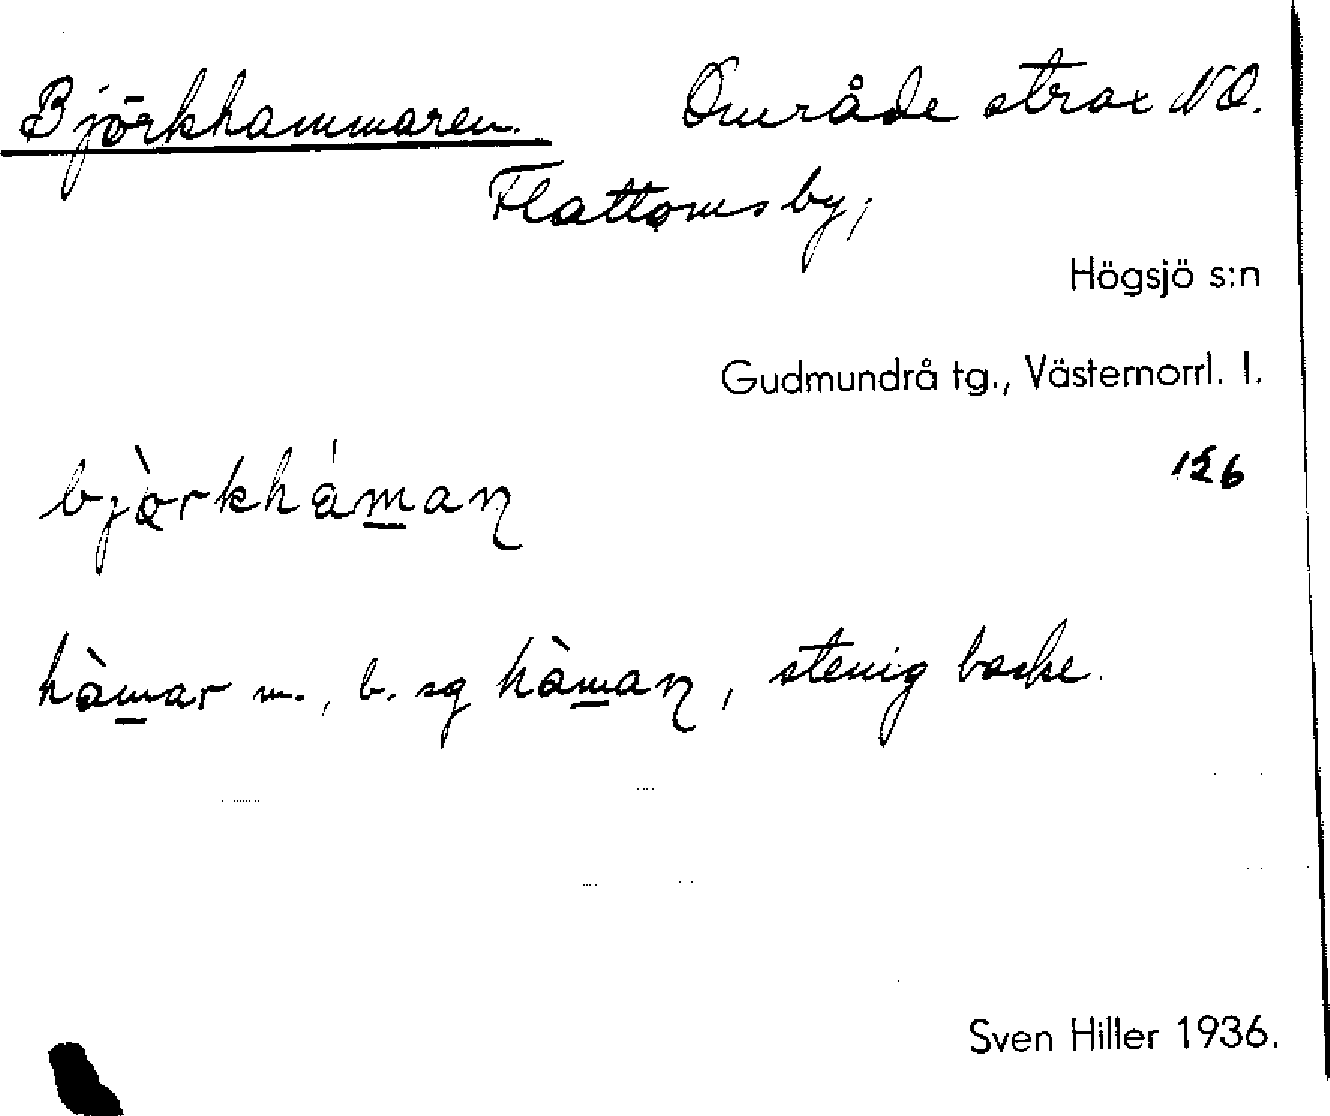 Björkhammaren. Område strax NO.
Flattoms by,
Högsjö s:n
Gudmundrå tg., Västernorrl. l.
126
bjòrkháman
hàmar m., b. sg hàman, stenig backe.
Sven Hiller 1936.